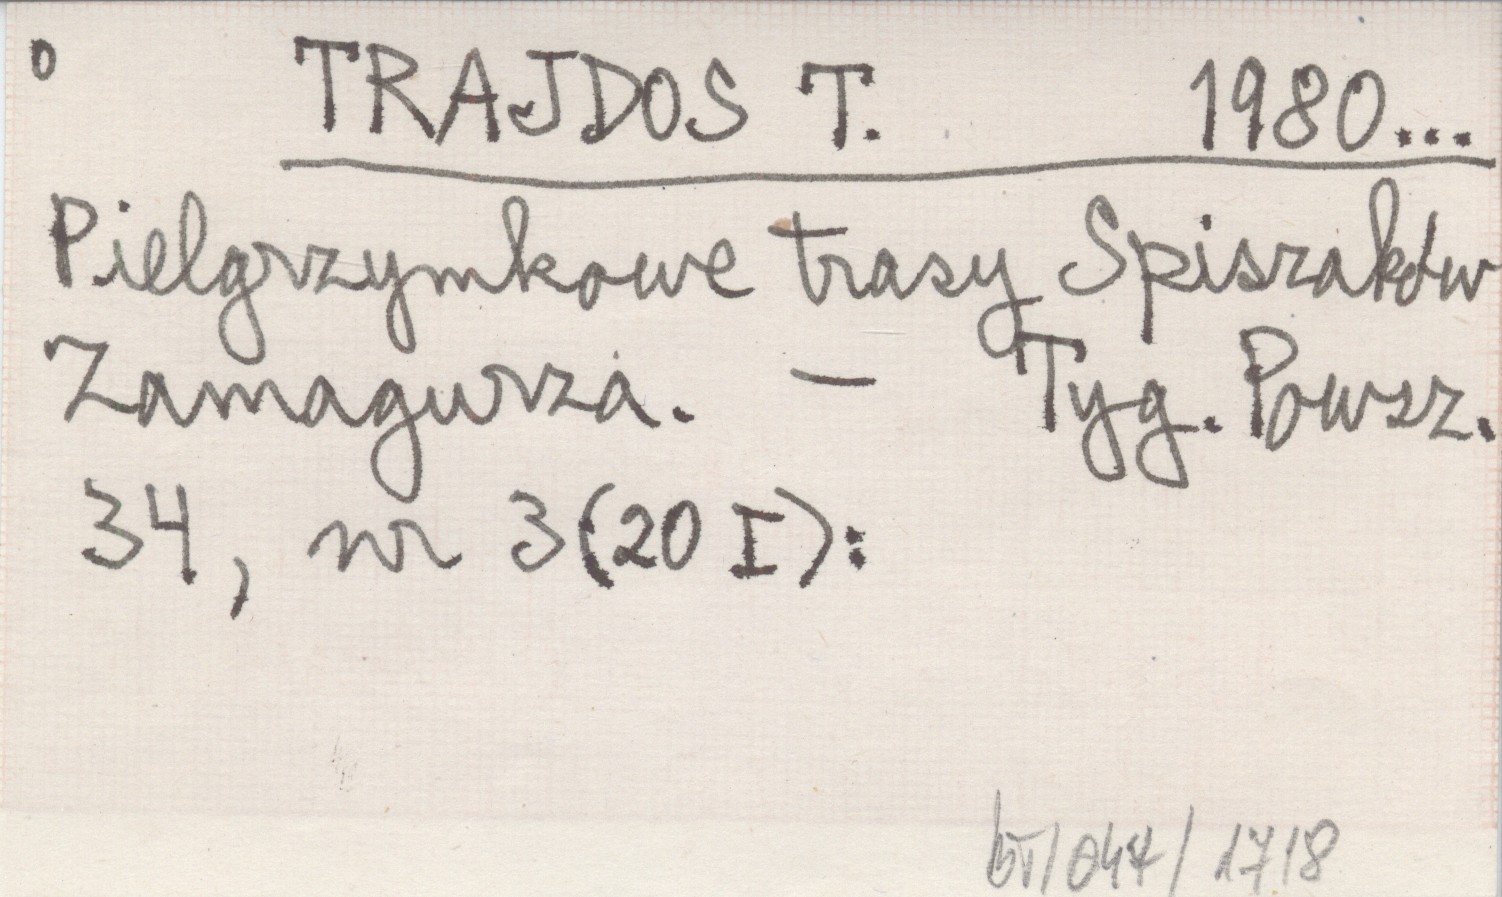 0 TRAJDOS T. 1980...
Pielgrzymkowe trasy Spiszaków
Zamagurza. — Tyg. Powsz.
34, nr 3 (20 I):
bt/044/1718